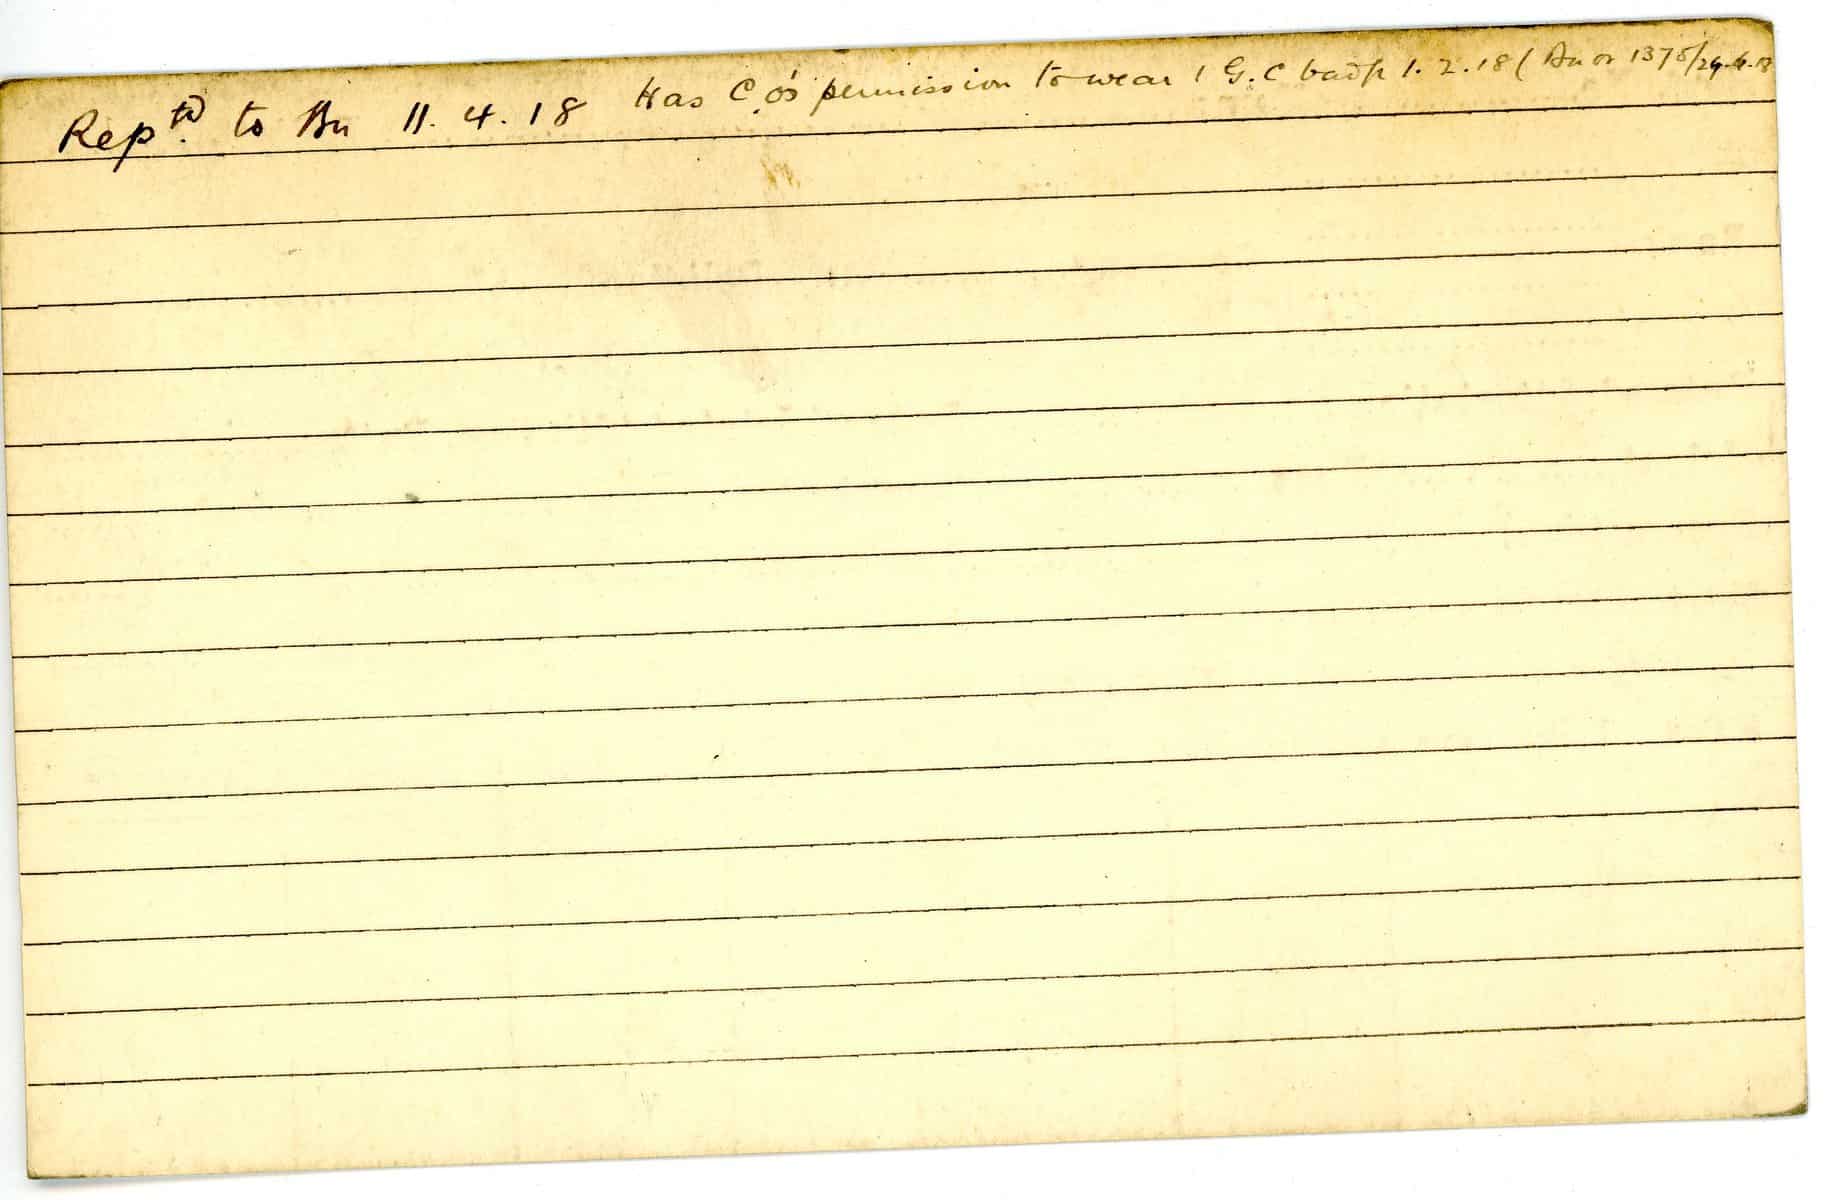 Rep.td to Bn 11. 4. 18 Has C.O's permission to wear 1 G.C badge 1. 2. 18 ( Bn or 1375/29.4.18